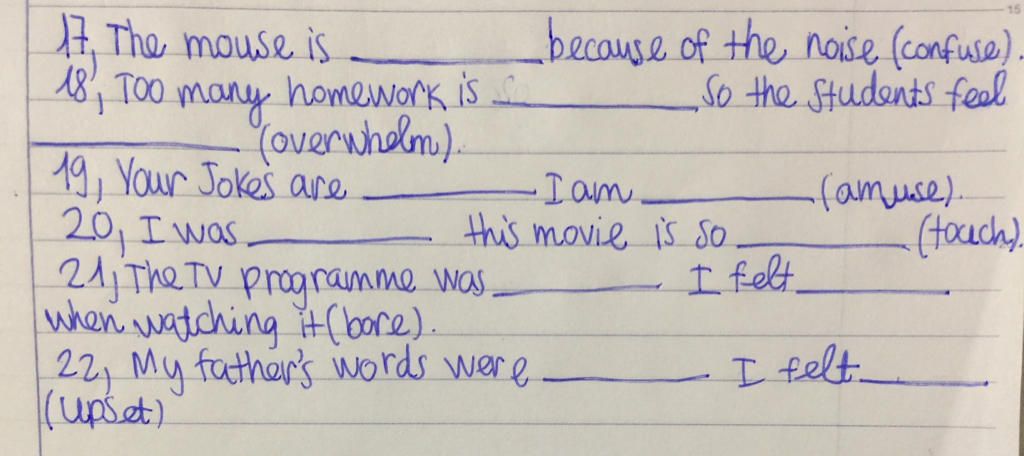 15
17, The mouse is ____________ because of the noise (confuse).
18, Too many homework is ____________ so the students feel
____________ (overwhelm).
19, Your Jokes are ____________ I am ____________ (amuse).
20, I was ____________ this movie is so ____________ (touch).
21, The TV programme was ____________ I felt ____________
when watching it (bore).
22, My father's words were ____________ I felt ____________
(upset)